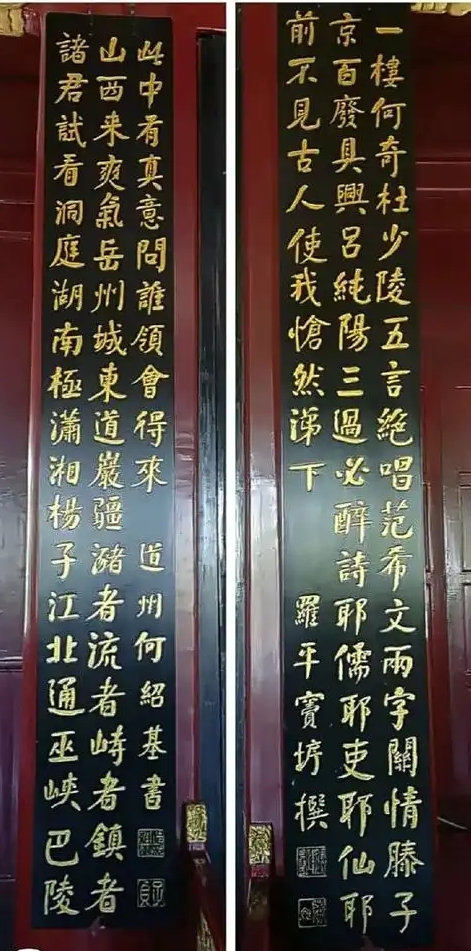 一樓何奇杜少陵五言絕唱范希文兩字關情滕子
京百廢具興呂純陽三過必醉詩耶儒耶吏耶仙耶
前不見古人使我愴然涕下
羅平竇垿撰
諸君試看洞庭湖南極瀟湘楊子江北通巫峽巴陵
山西来爽氣岳州城東道巖疆瀦者流者峙者鎮者
此中有真意問誰領會得來
道州何紹基書